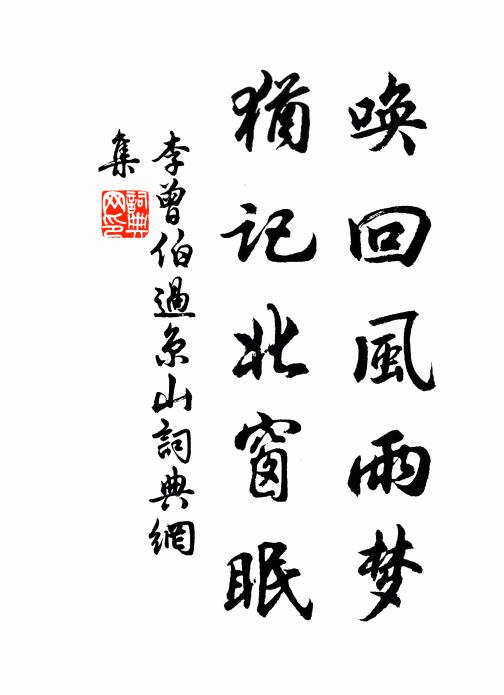 唤回風雨梦
猶记北窗眠
李曾伯過京山詞典網
集
詞典网印